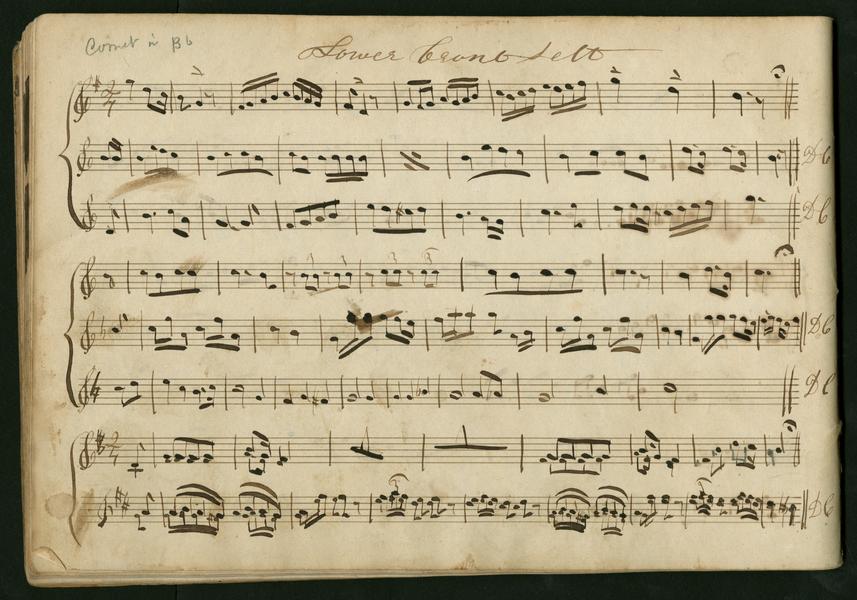 Cornet in Bb
Flower Grant Sett
D C
D C
D C
D C
D C